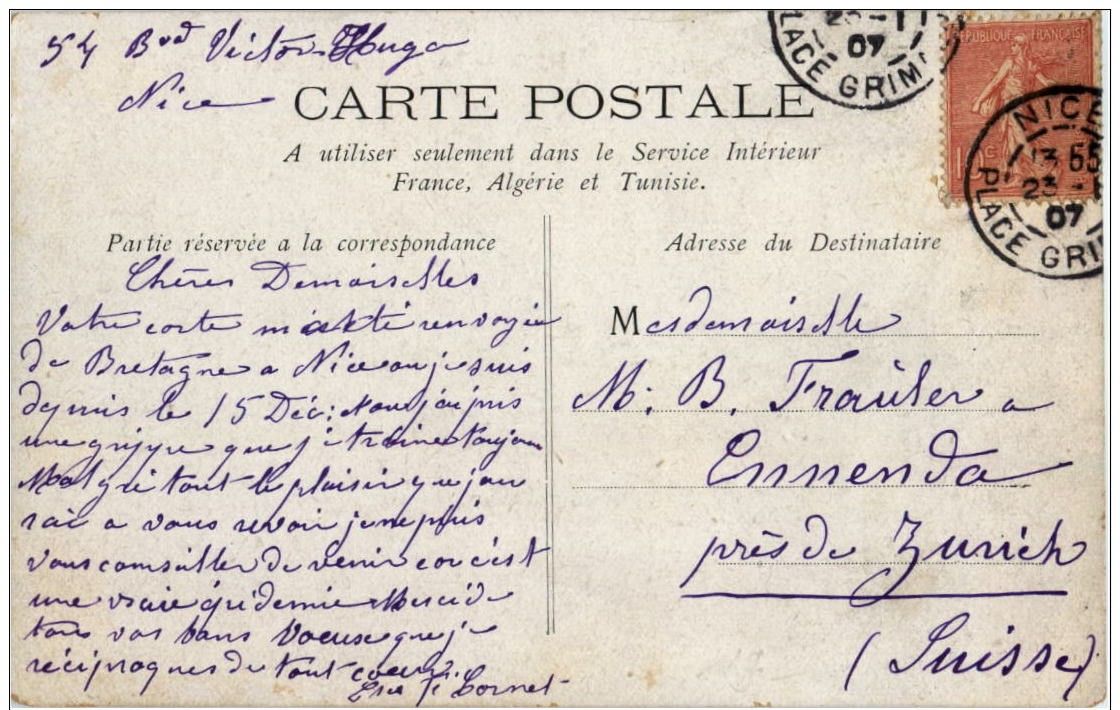 54 Bvd Victor Hugo
Nice
CARTE POSTALE
A utiliser seulement dans le Service Intérieur
France, Algérie et Tunisie.
REPUBLIQUE FRANÇAISE
23 - 1
07
PLACE GRIM
NICE
13 55
23 -
07
PLACE GRI
Partie réservée a la correspondance
Chères Demoiselles
Votre carte m'a été renvoyée
de Bretagne a Nice ou je suis
depuis le 15 Déc: Nous j'ai pris
une grippe que j traine toujours
Malgré tout le plaisir que j'au
rai a vous revoir je ne puis
vous conseiller de venir car c'est
une vraie épidemie Merci de
tous vos bons Voeux que je
réciproques de tout coeur
Cornet
Adresse du Destinataire
Mesdemoiselle
M. B. Fraüler a
Ennenda
près de Zurich
(Suisse)